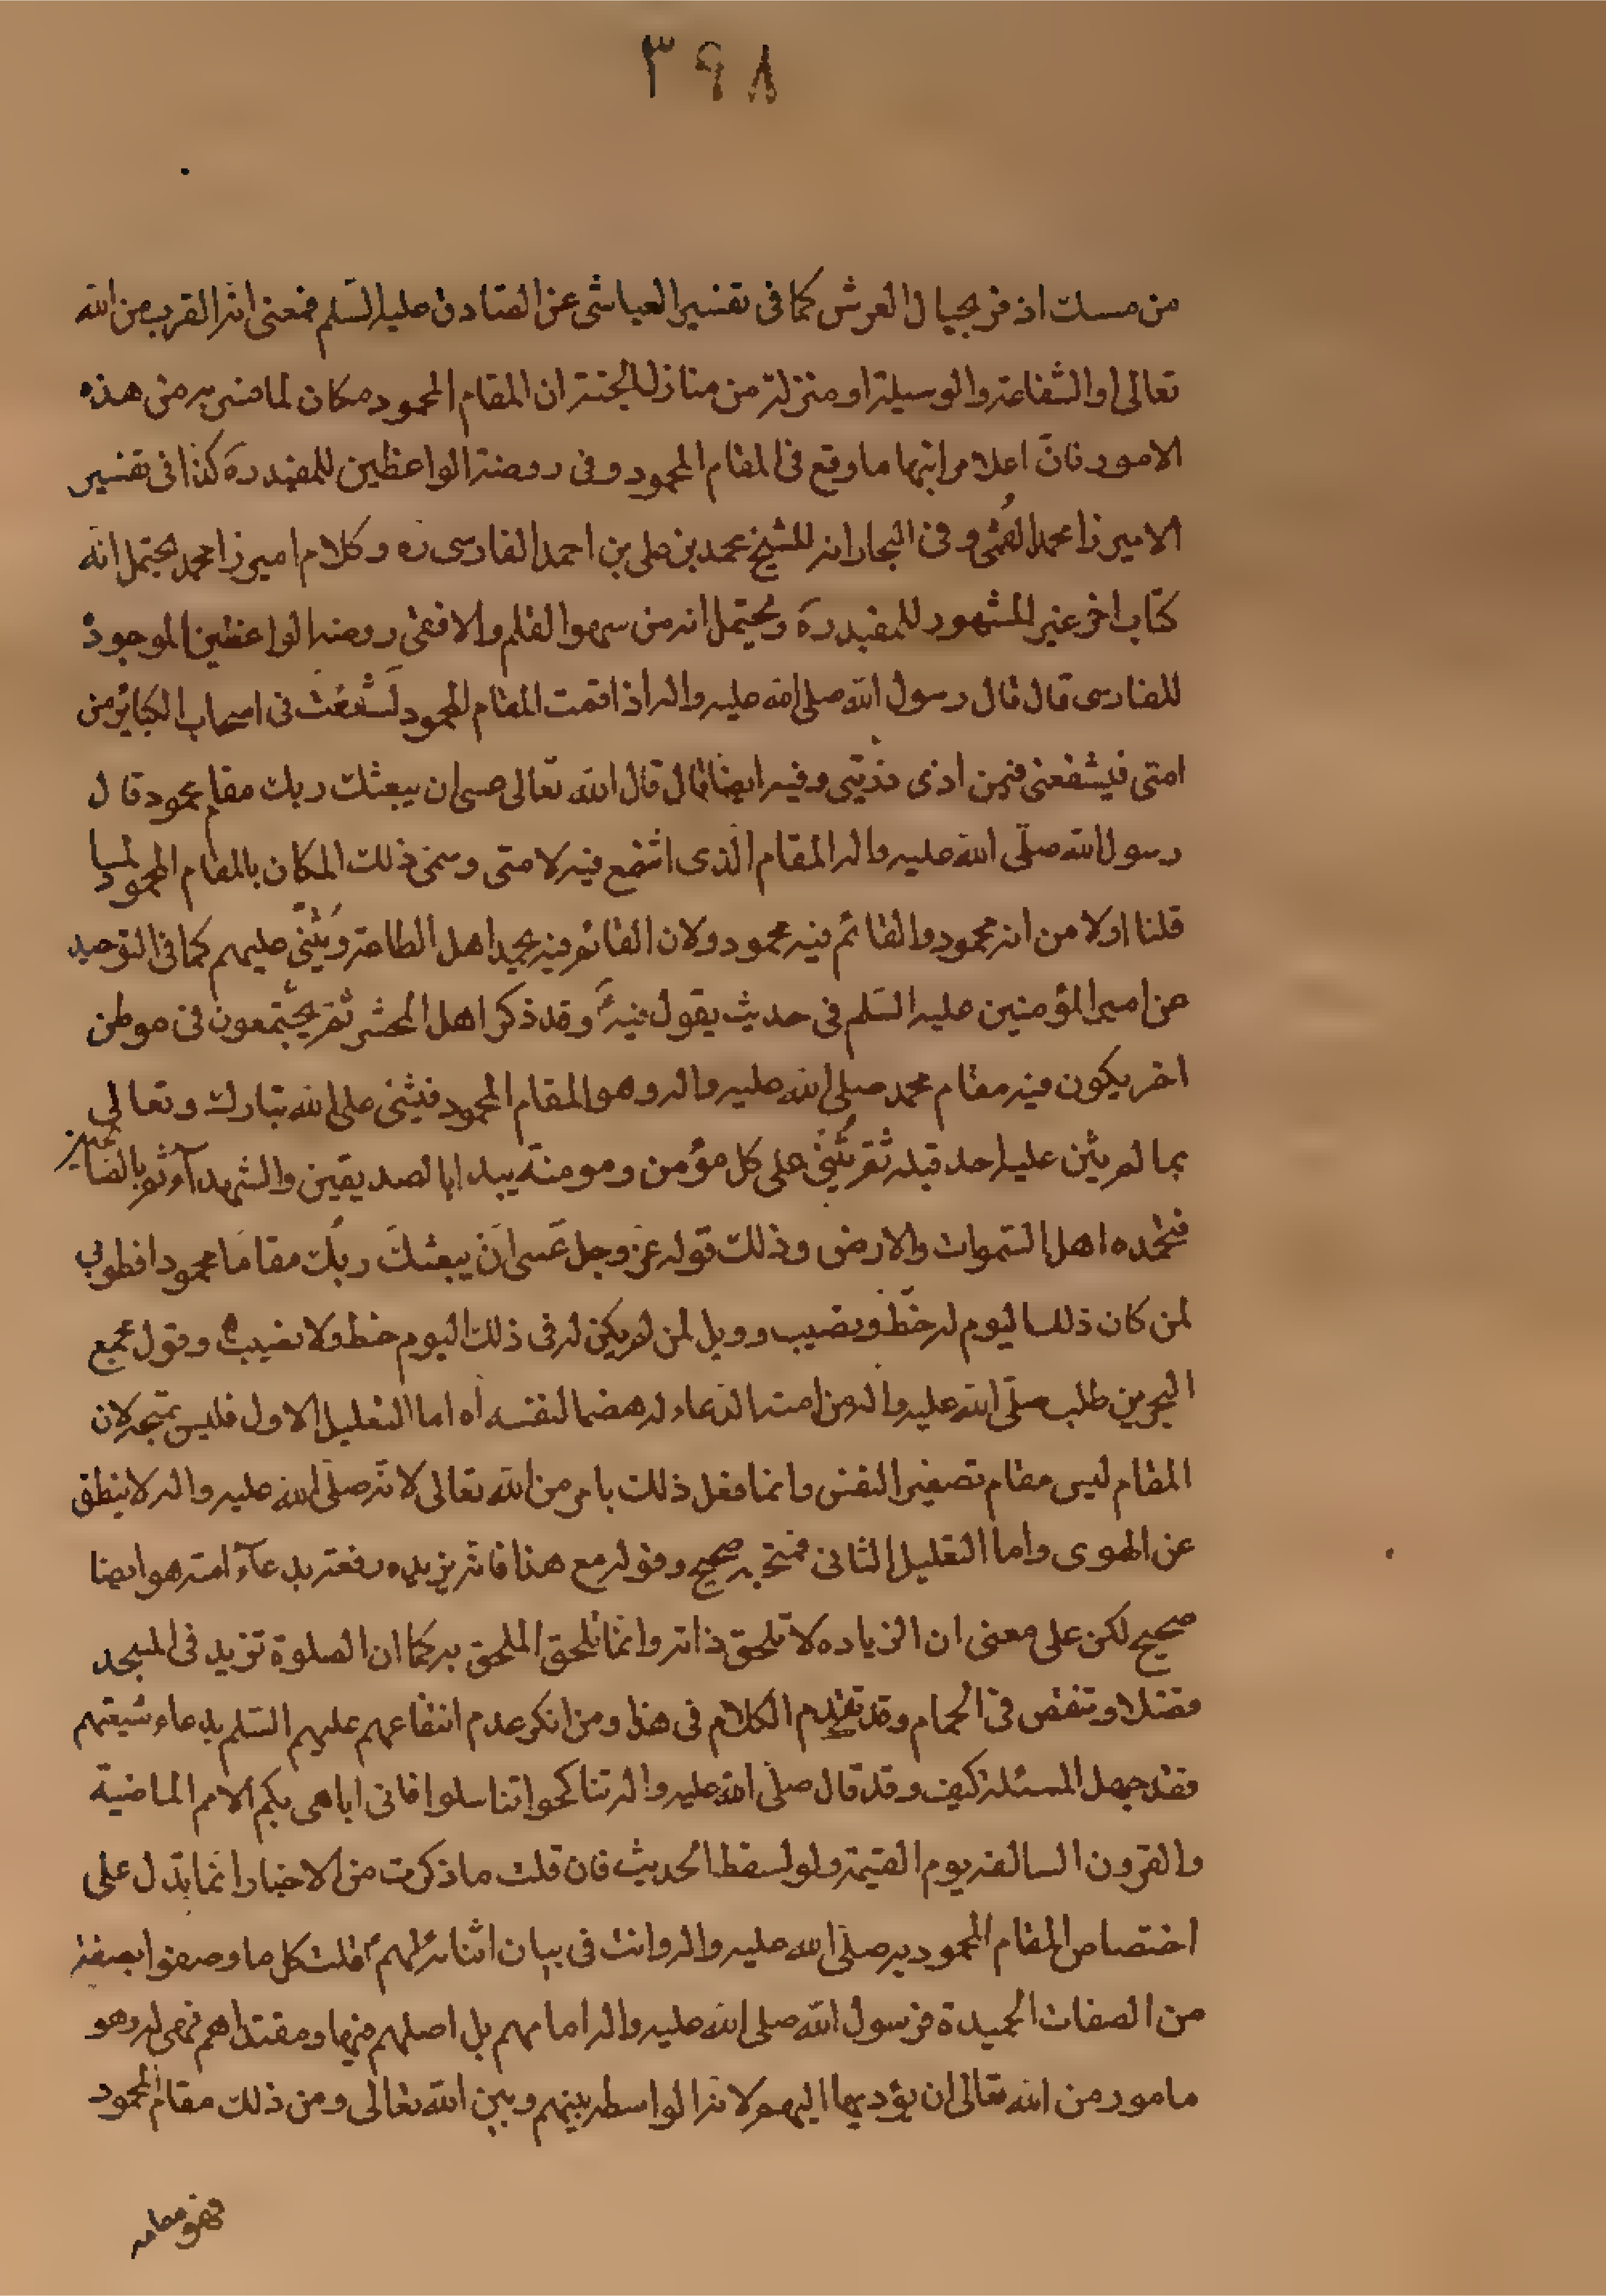 ٣٩٨
من مسك اذفر بحيال العرش كما فى تفسير العياشى عن الصادق عليه السّلم فمعنى انّه القرب من اللّه
تعالى او الشفاعة والوسيلة او منزلة من منازل الجنة ان المقام المحمود مكان لما فسّر به من هذه
الامور فانّ اعلا مراتبها ما وقع فى المقام المحمود وفى روضة الواعظين للمفيد ره كذا فى تفسير
الاميرزا محمد القمّى وفى البحار انه للشيخ محمد بن على بن احمد الفارسى ره وكلام اميرزا محمد يحتمل انّه
كتاب اخر غير المشهور للمفيد ره ويحتمل انه من سهو القلم والا ففى روضة الواعظين الموجود
للفارسى قال قال رسول اللّه صلى اللّه عليه واله اذا قمت المقام المحمود تشفعت فى اصحاب الكبائر من
امتى فيشفعنى فيمن اذى ذرّيتى وفيه ايضا قال قال اللّه تعالى عسى ان يبعثك ربك مقام محمود قال
رسول اللّه صلّى اللّه عليه واله المقام الّذى اشفع فيه لامتى وسمّى ذلك المكان بالمقام المحمود لما
قلنا اولا من انه محمود والقائم فيه محمود ولان القائم فيه يحمد اهل الطاعة ويُثنى عليهم كما فى التوحيد
عن امير المؤمنين عليه السّلم فى حديث يقول فيه وقد ذكر اهل المحشر ثم يجتمعون فى موطن
اخر يكون فيه مقام محمد صلى اللّه عليه واله وهو المقام المحمود فيثنى على اللّه تبارك وتعالى
بما لم يثن عليه احد قبله ثم يُثنى على كل مؤمن ومومنة يبدا بالصديقين والشهداء ثم بالصالحين
فيحمده اهل السّموات والارض وذلك قوله عزّ وجل عَسى اَن يبعثكَ ربُك مقامًا محمودا فطوبى
لمن كان ذلك اليوم له حظّ ونصيب وويل لمن لم يكن له فى ذلك اليوم حظ ولا نصيب وقول مجمع
البحرين طلب صلّى اللّه عليه واله من امته الدعاء له هضما لنفسه اه اما التعليل الاول فليس بمتجه لان
المقام ليس مقام تصغير النفس وانما فعل ذلك بامر من اللّه تعالى لانّه صلّى اللّه عليه واله لا ينطق
عن الهوى واما التعليل الثانى فمتجه صحيح وقوله مع هذا فانّه يزيده رفعة بدعاء امته هو ايضا
صحيح لكن على معنى ان الزياده لا تلحق ذاته وانّما تلحق الملحق به كما ان الصلوة تزيد فى المسجد
فضلا وتنقص فى الحمام وقد تقدم الكلام فى هذا ومن انكر عدم انتفاعهم عليهم السّلم بدعاء شيعتهم
فقد جهل المسئلة كيف وقد قال صلّى اللّه عليه واله تناكحوا تناسلوا فانى اباهى بكم الامم الماضية
والقرون السالفة يوم القيمة ولو لسقط الحديث فان قلت ما ذكرت من الاخبار انّما يدّل على
اختصاص المقام المحمود به صلّى اللّه عليه واله وانت فى بيان اثباته لهم قلت كل ما وصفوا بصفة
من الصفات الحميدة فرسول اللّه صلى اللّه عليه واله امامهم بل اصلهم فيها ومقتداهم فهى له وهو
مامور من اللّه تعالى ان يؤديها اليهم لانّه الواسطة بينهم وبين اللّه تعالى ومن ذلك مقام المحمود
فهو مقامه